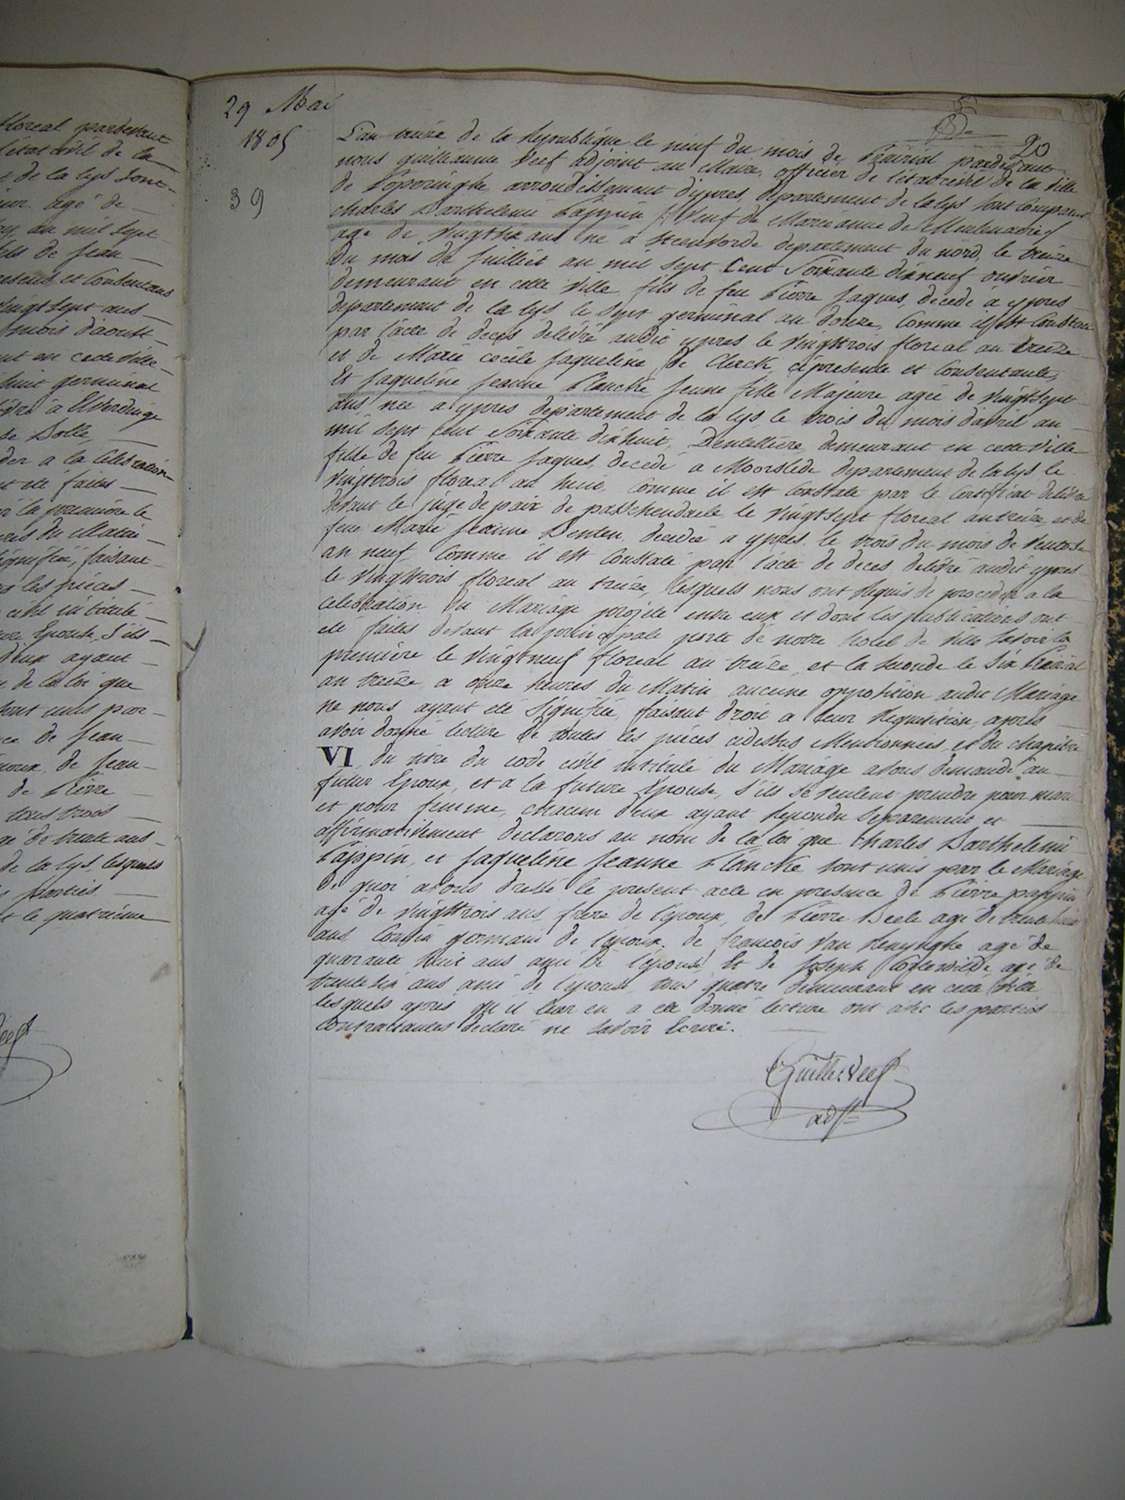 floreal pardevant
l'état civil de la
t de la lys sont
agé de
an mil sept
fils de Jean
presente et Consentans
vingt sept ans
mois d'aoust
en cette ville
huit germinal
à Elverdinge
de Dolle
à la Célébration
été faites
la première le
du Matin
signifiée, faisant
les pièces
civil intitulé
Epouse, s'ils
d'eux ayant
de la loi que
sont unis par
de Jean
de Jean
de Pierre
tous trois
agé de trente ans
de la lys, lesquels
parties
le quatrieme
29 Mai
1805
39
20
L'an treize de la République le neuf du mois de Prairial pardevant
nous guilleaume Veef adjoint au Maire officier de l'état civil de la ville
de Poperinghe arrondissement d'ypres, département de la lys sont comparus
charles Barthelemi Pappin veuf de Marieanne de Meulenaere
agé de vingt six ans né à Steenvorde departement du nord, le treize
du mois de juillet an mil sept Cent Soixante dixneuf ouvrier
demeurant en cette ville fils de feu Pierre Jaques, décédé a ypres
departement de la lys le sept germinal an douze, Comme il est Constaté
par l'acte de decès delivré audit ypres le vingttrois floreal an treize
et de Marie cecile jaqueline de Clerck, cipresente et Consentante;
Et jaqueline jeanne Plancke jeune fille Majeure agée de vingtsept
ans née a ypres departement de la lys le trois du mois d'avril an
mil sept cent Soixante dixhuit, Dentellière demeurant en cette ville
fille de feu Pierre Jaques, decédé à Moorslede Departement de la lys le
vingttrois floreal an neuf, Comme il est Constaté par le Certificat delivré
devant le juge de paix de passchendaele le vingtsept floreal an treize, et de
feue Marie jeanne Denten, decédée a ypres, le trois du mois de ventose
an neuf Comme il est Constaté par l'acte de deces delivré audit ypres
le vingttrois floreal an treize, lesquels nous ont requis de proceder a la
celebration du Mariage projeté entre eux et dont les publications ont
eté faites devant la principale porte de notre hotel de ville savoir la
premiére le vingtneuf floreal an treize et la seconde le six Prairial
an treize, a onze heures du Matin aucune opposition audit Mariage
ne nous ayant eté signifiée, faisant droit a leur requisition, après
avoir donné lecture de toutes les pièces cidessus Mentionnées, et du chapitre
VI du titre du code civil intitulé du Mariage avons demandé au
futur Epoux, et à la future Epouse, s'ils se veulent prendre pour mari
et pour femme, chacun d'eux ayant repondu Séparement et
affirmativement declarons au nom de la loi que Charles Barthelemi
Pappin, et jaqueline jeanne Plancke sont unis par le Mariage
de quoi avons dressé le present acte en presence de Pierre pappin
agé de vingttrois ans, frere de l'epoux, de Pierre Deele agé de trente
ans Cousin germain de l'époux, de françois van Renynghe agé de
quarante huit ans ami de l'epouse Et de joseph agé de
trente six ans ami de l'epouse tous quatre demeurant en cette ville
lesquels après qu'il leur en a eté donné lecture ont avec les parties
contractantes declaré ne savoir Ecrire.
Guille: Veef
adjt